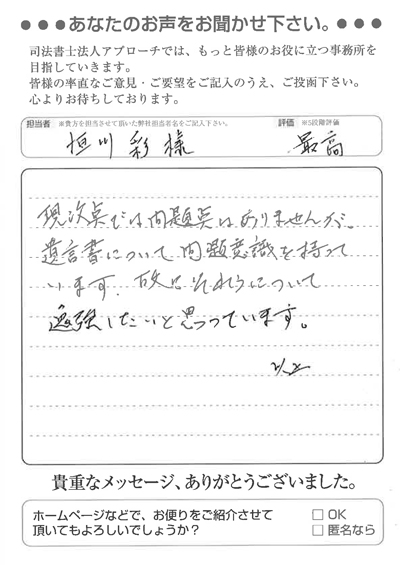 ●●●あなたのお声をお聞かせ下さい。●●●
司法書士法人アプローチでは、もっと皆様のお役に立つ事務所を
目指していきます。
皆様の率直なご意見・ご要望をご記入のうえ、ご投函下さい。
心よりお待ちしております。
担当者 ※貴方を担当させて頂いた弊社担当者名をご記入下さい。 評価 ※5段階評価
垣川 彩 様 最高
現次点では問題点はありませんが、
遺言書について問題意識を持って
います。故にそれらについて
勉強したいと思っています。
以上
貴重なメッセージ、ありがとうございました。
ホームページなどで、お便りをご紹介させて
頂いてもよろしいでしょうか?
□ OK
□ 匿名なら